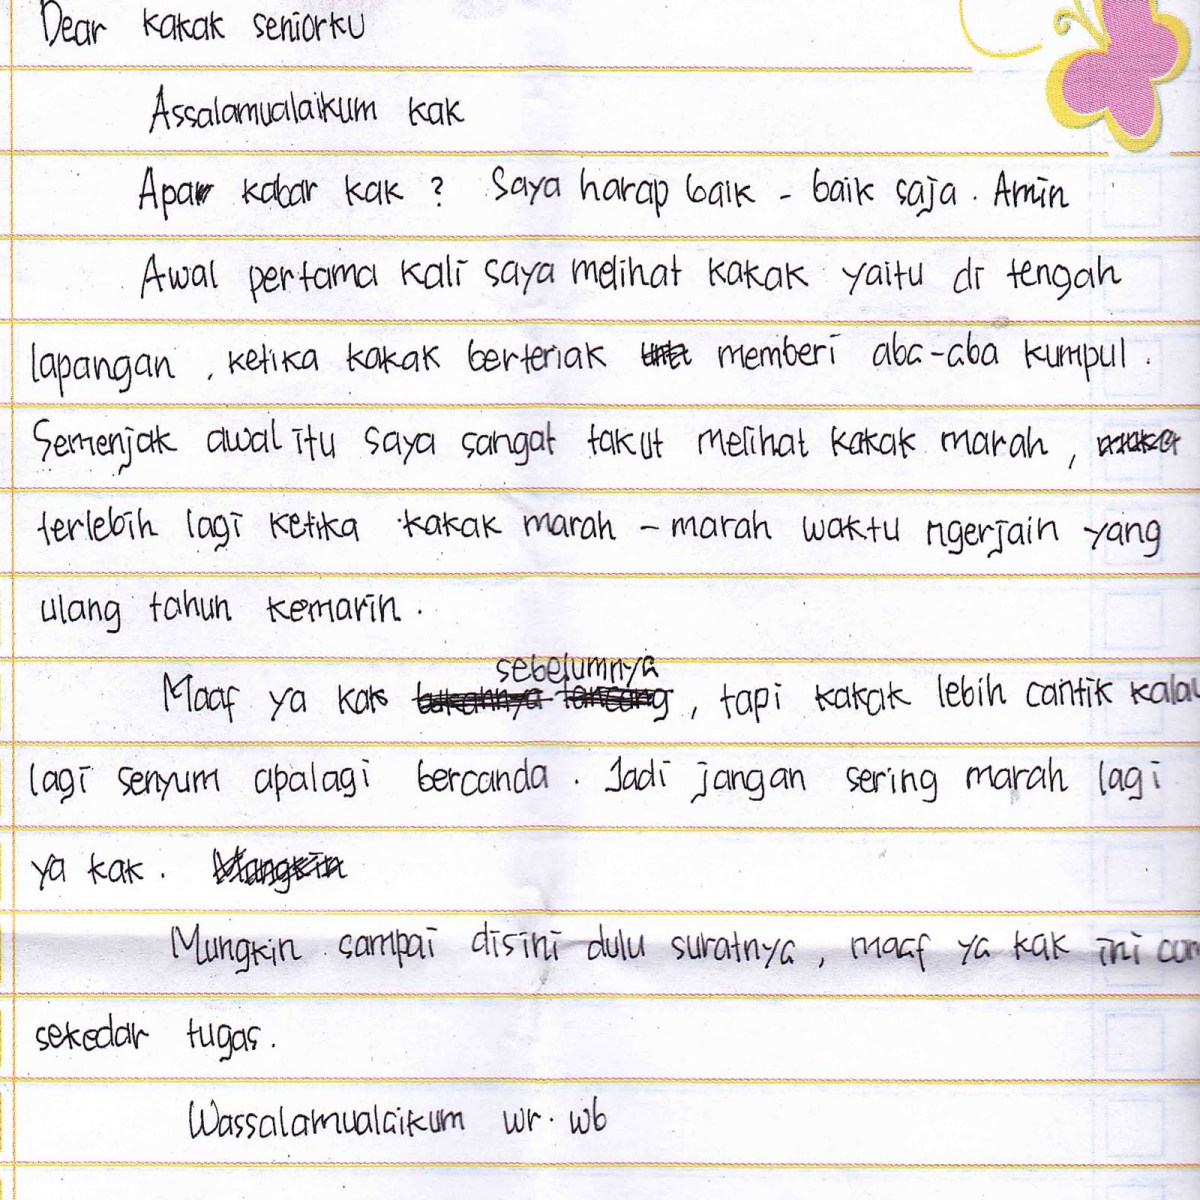 Dear kakak seniorku
Assalamualaikum kak
Apa kabar kak ? Saya harap baik - baik saja. Amin
Awal pertama kali saya melihat kakak yaitu di tengah
lapangan , ketika kakak berteriak memberi aba-aba kumpul .
Semenjak awal itu saya sangat takut melihat kakak marah ,
terlebih lagi ketika kakak marah - marah waktu ngerjain yang
ulang tahun kemarin .
sebelumnya
Maaf ya kak , tapi kakak lebih cantik kalau
lagi senyum apalagi bercanda . Jadi jangan sering marah lagi
ya kak . Mungkin
Mungkin sampai disini dulu suratnya , maaf ya kak ini
sekedar tugas .
Wassalamualaikum wr. wb